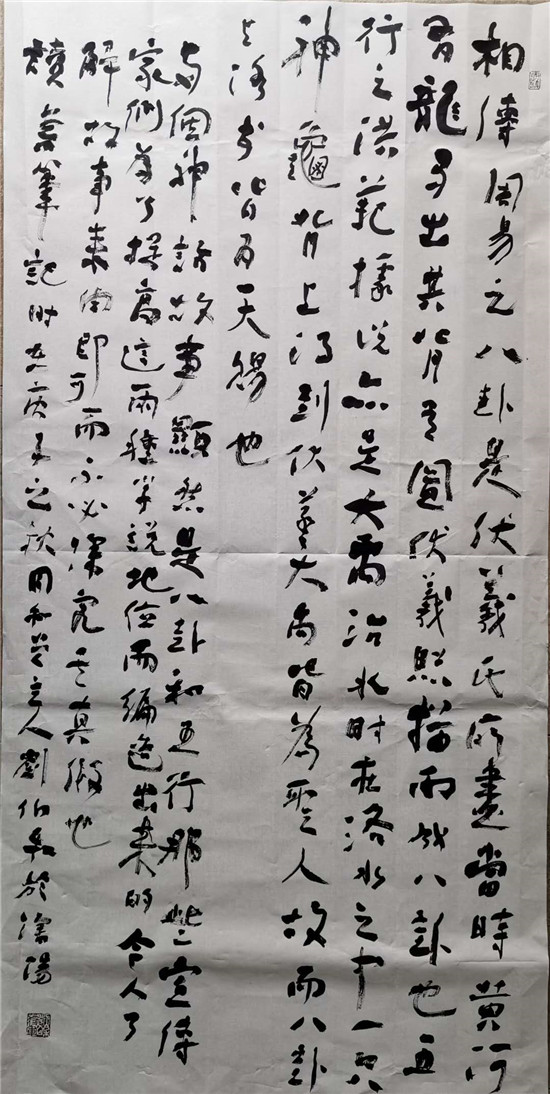 相傳周易之八卦是伏羲氏所畫當時黄河
有龍马出其背有圖伏羲照描而成八卦也五
行之洪範據说亦是大禹治水时在洛水之中一只
神龜背上得到伏羲大禹皆為聖人故而八卦
与洛书皆为天赐也
两個神話故事顯然是八卦和五行那些宣傳
家们為了提高這两種学説地位而編造出来的令人了
解故事来由即可而不必深究其真假也
讀書筆記时在庚子之秋同和堂主人劉伯於濮陽